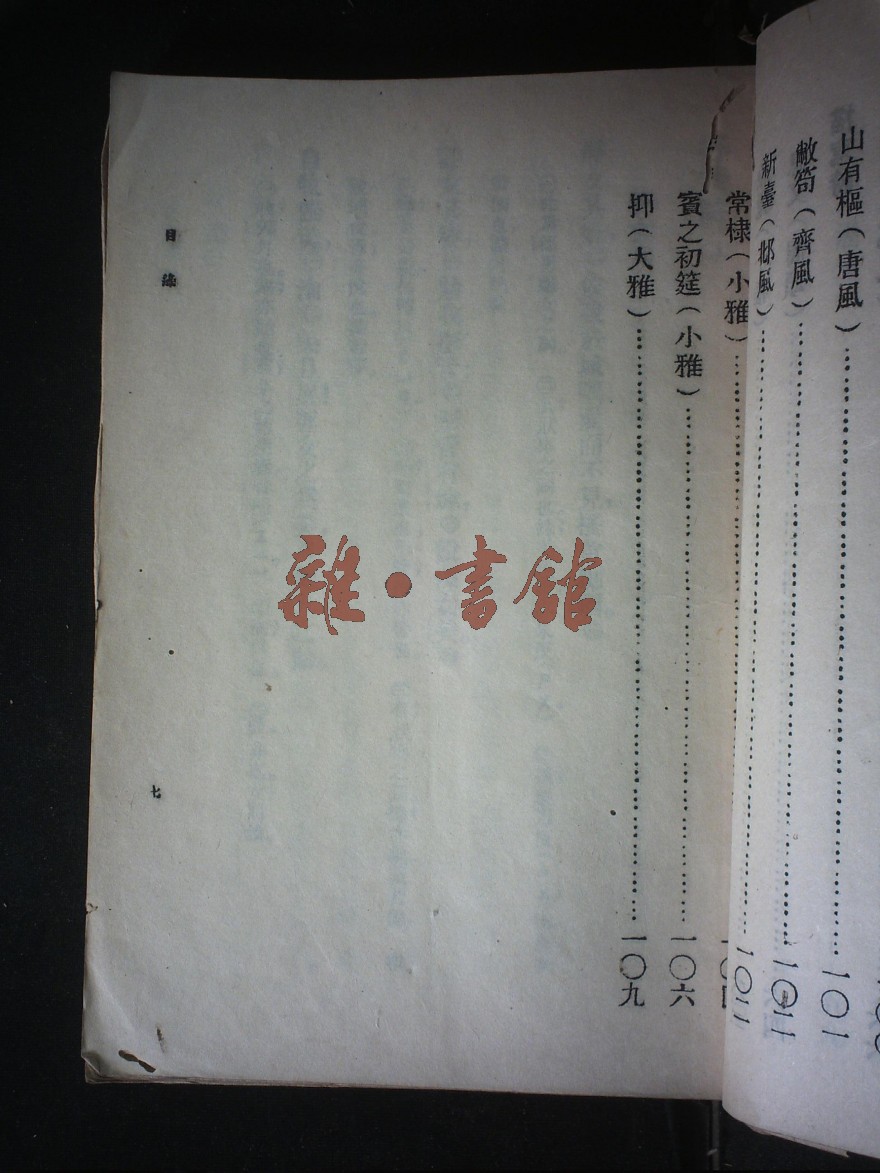 山有樞（唐風）…………一〇一
敝笱（齊風）…………一〇二
新臺（邶風）…………一〇二
常棣（小雅）…………一〇四
賓之初筵（小雅）…………一〇六
抑（大雅）…………一〇九
目錄
七
雜·書館